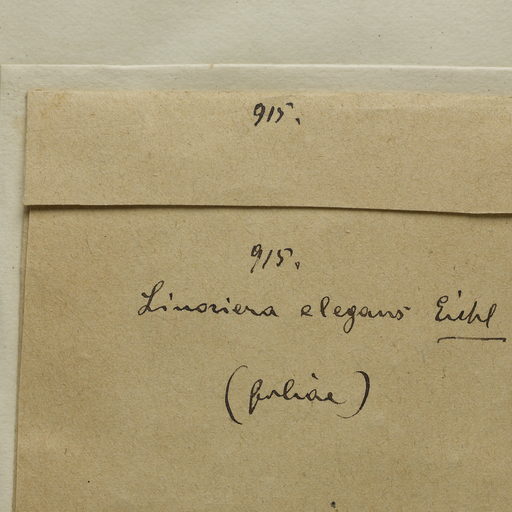 915.
915.
Linociera elegans Eichl
(foliae)